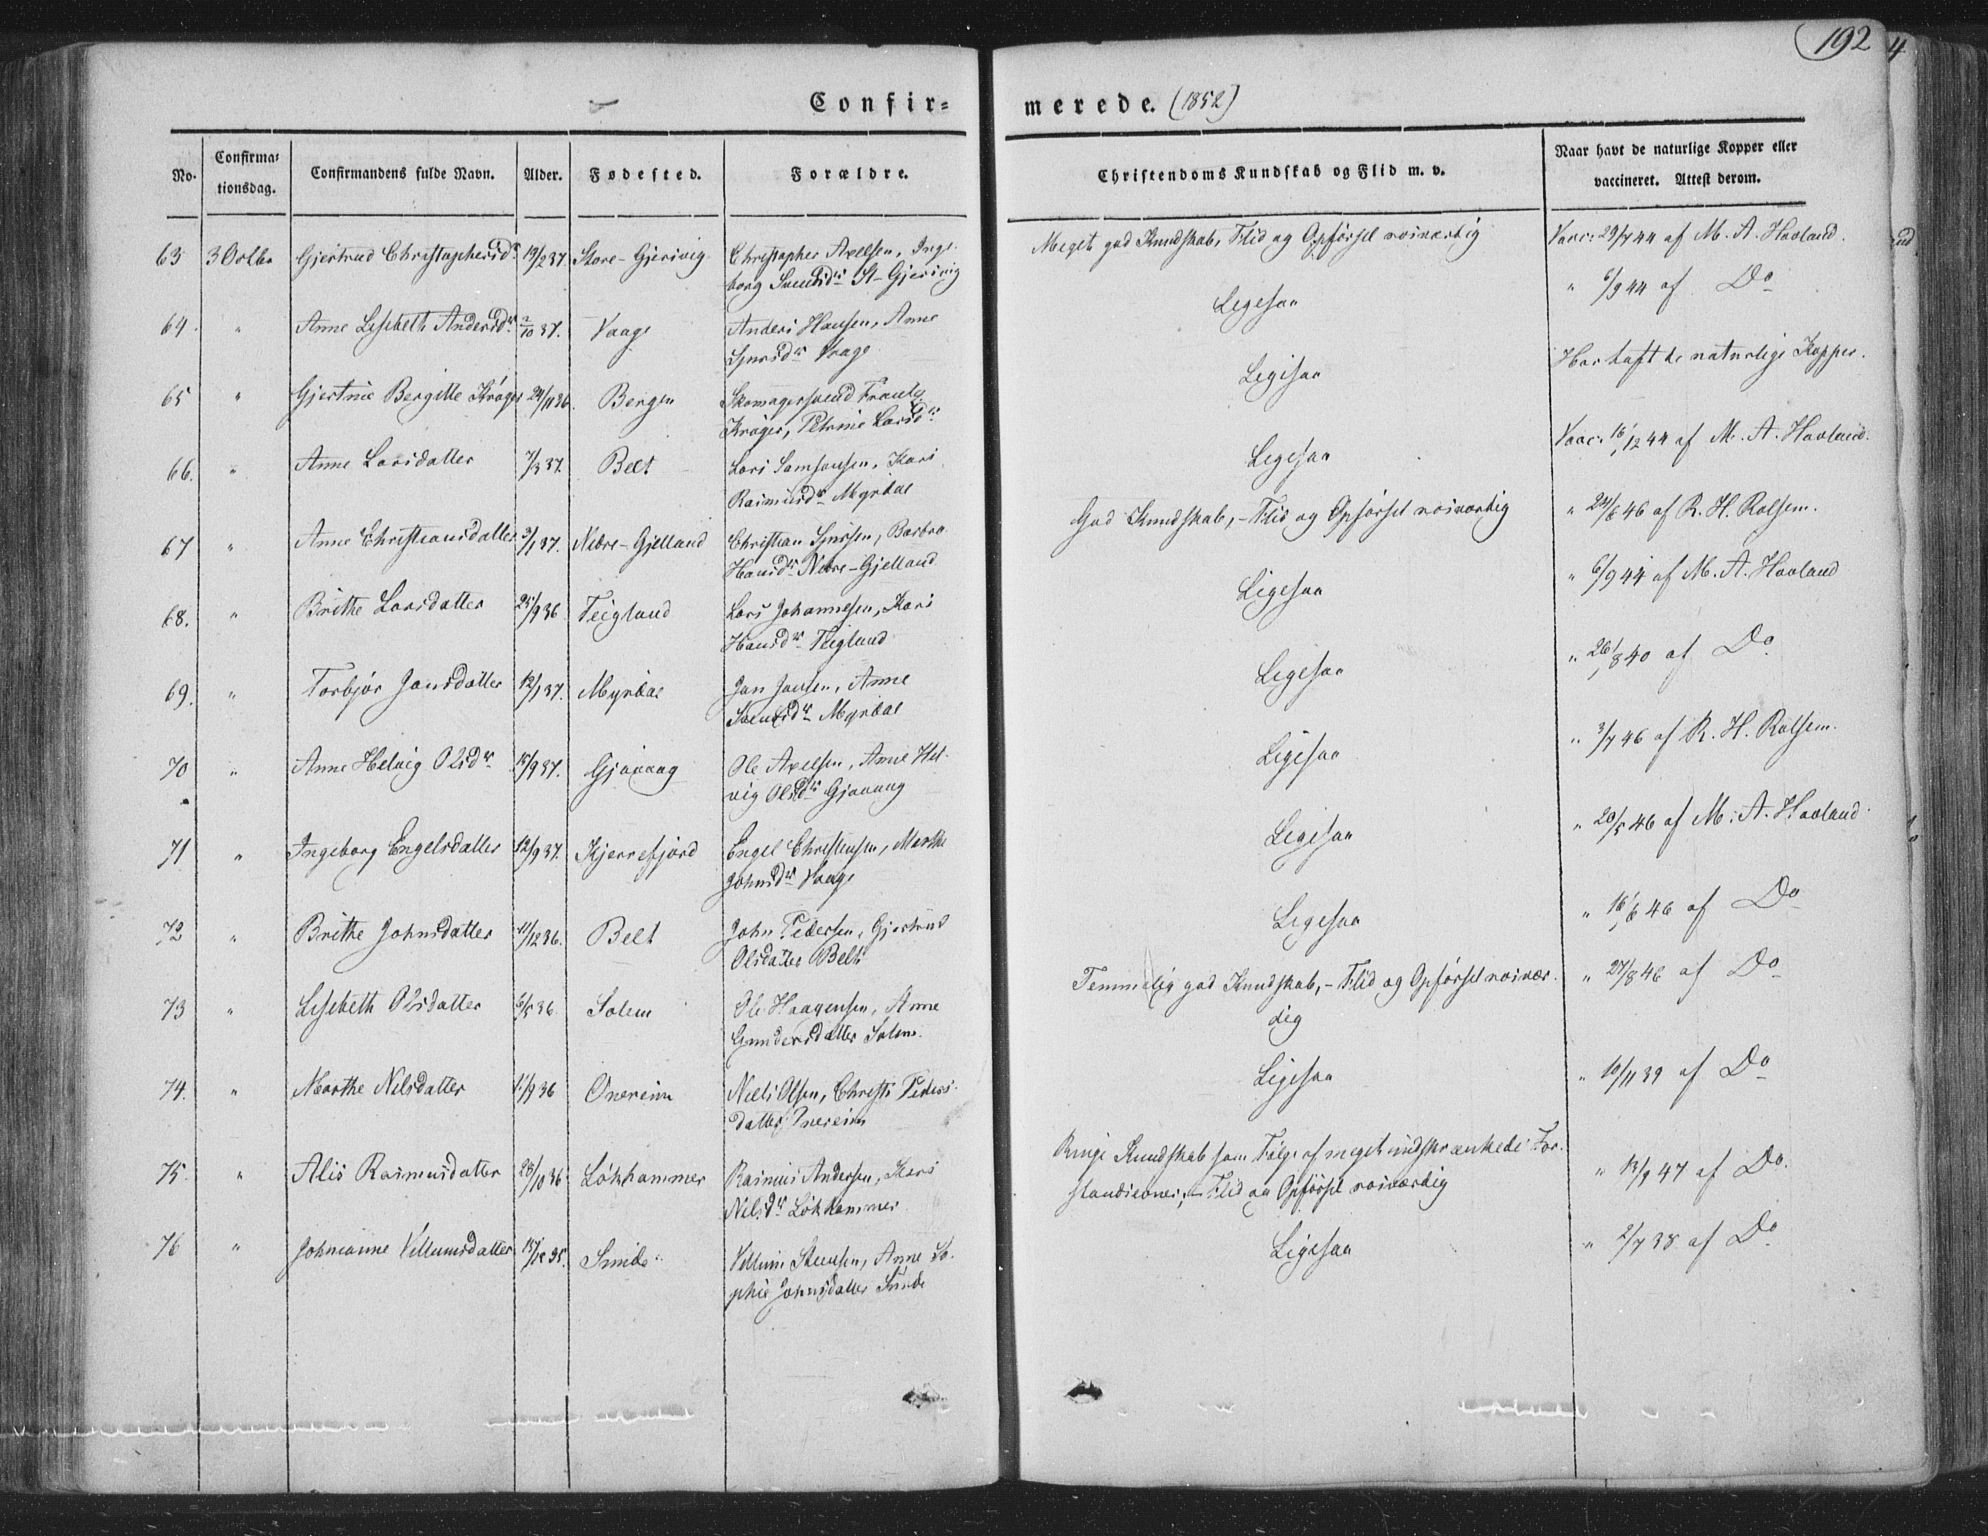 192
Confir=
merede. (1852)
No.
Confirma=
tionsdag.
Confirmandens fulde Navn.
Alder.
Fødested.
Forældre.
Christendoms Kundskab og Flid m. v.
Naar havt de naturlige Kopper eller
vaccineret. Attest derom.
63 3 Octbr Gjertrud Christophersdr 19/2 37. Store-Gjersvig Christopher Axelsen, Inge-
borg Svendsdr St-Gjersvig
Meget god Kundskab, Flid og Opførsel roisværdig Vacc: 29/7 44 af M. A. Havland.
64. " Anne Lisebeth Andersdr 2/10 37. Vaage Anders Hansen, Anne
Sjursdr Vaage
Ligesaa " 6/9 44 af Do
65 " Gjertine Bergitte Krøger 24/11 36. Bergen Skomagersvend Frants
Krøger, Petrine Larsdr
Ligesaa Har haft de naturlige Kopper.
66. " Anne Larsdatter 7/3 37. Belt Lars Samsonsen, Kari
Rasmusdr Myrdal
Ligesaa Vacc: 16/12 44 af M. A. Havland.
67 " Anne Christiansdatter 3/1 37. Nedre-Gjelland Christian Sjursen, Barbro
Hansdr Nedre-Gjelland
God Kundskab, - Flid og Opførsel roisværdig " 24/6 46 af R. H. Rolsem.
68. " Brithe Larsdatter 25/9 36 Teigland Lars Johannesen, Kari
Hansdr Teigland
Ligesaa " 6/9 44 af M. A. Havland
69. " Torbjør Jansdatter 12/1 37. Myrdal Jan Jansen, Anne
Svendsdr Myrdal
Ligesaa " 26/8 40 af Do
70 " Anne Helvig Olsdr 15/9 37. Gjøvaag Ole Axelsen, Anne Hel-
vig Olsdr Gjøvaag
Ligesaa " 3/7 46 af R. H. Rolsem.
71 " Ingeborg Engelsdatter 12/9 37. Kjerrefjord Engel Christensen, Marthe
Johnsdr Vaage
Ligesaa " 20/5 46 af M. A. Havland.
72 " Brithe Johnsdatter 11/12 36. Belt John Pedersen, Gjertrud
Olsdatter Belt
Ligesaa " 16/6 46 af Do
73 " Lisebeth Olsdatter 6/5 36 Solem Ole Haagensen, Anne
Gundersdatter Solem.
Temmelig god Kundskab, - Flid og Opførsel roisvær-
dig
" 27/8 46 af Do
74. " Marthe Nilsdatter 11/9 36 Onereim Niels Olsen, Christi Peders-
datter Onereim
Ligesaa " 10/11 39 af Do
75. " Alis Rasmusdatter 28/10 36 Løkhammer Rasmus Andersen, Kari
Nilsdr Løkhammer
Ringe Kundskab som Følge af meget indskrænkede For-
standsevner; - Flid og Opførsel roisværdig
" 13/9 47 af Do.
76 " Johnanne Villumsdatter 15/12 35. Sunde Villum Steensen, Anne So-
phie Johnsdatter Sunde
Ligesaa " 2/7 38 af Do